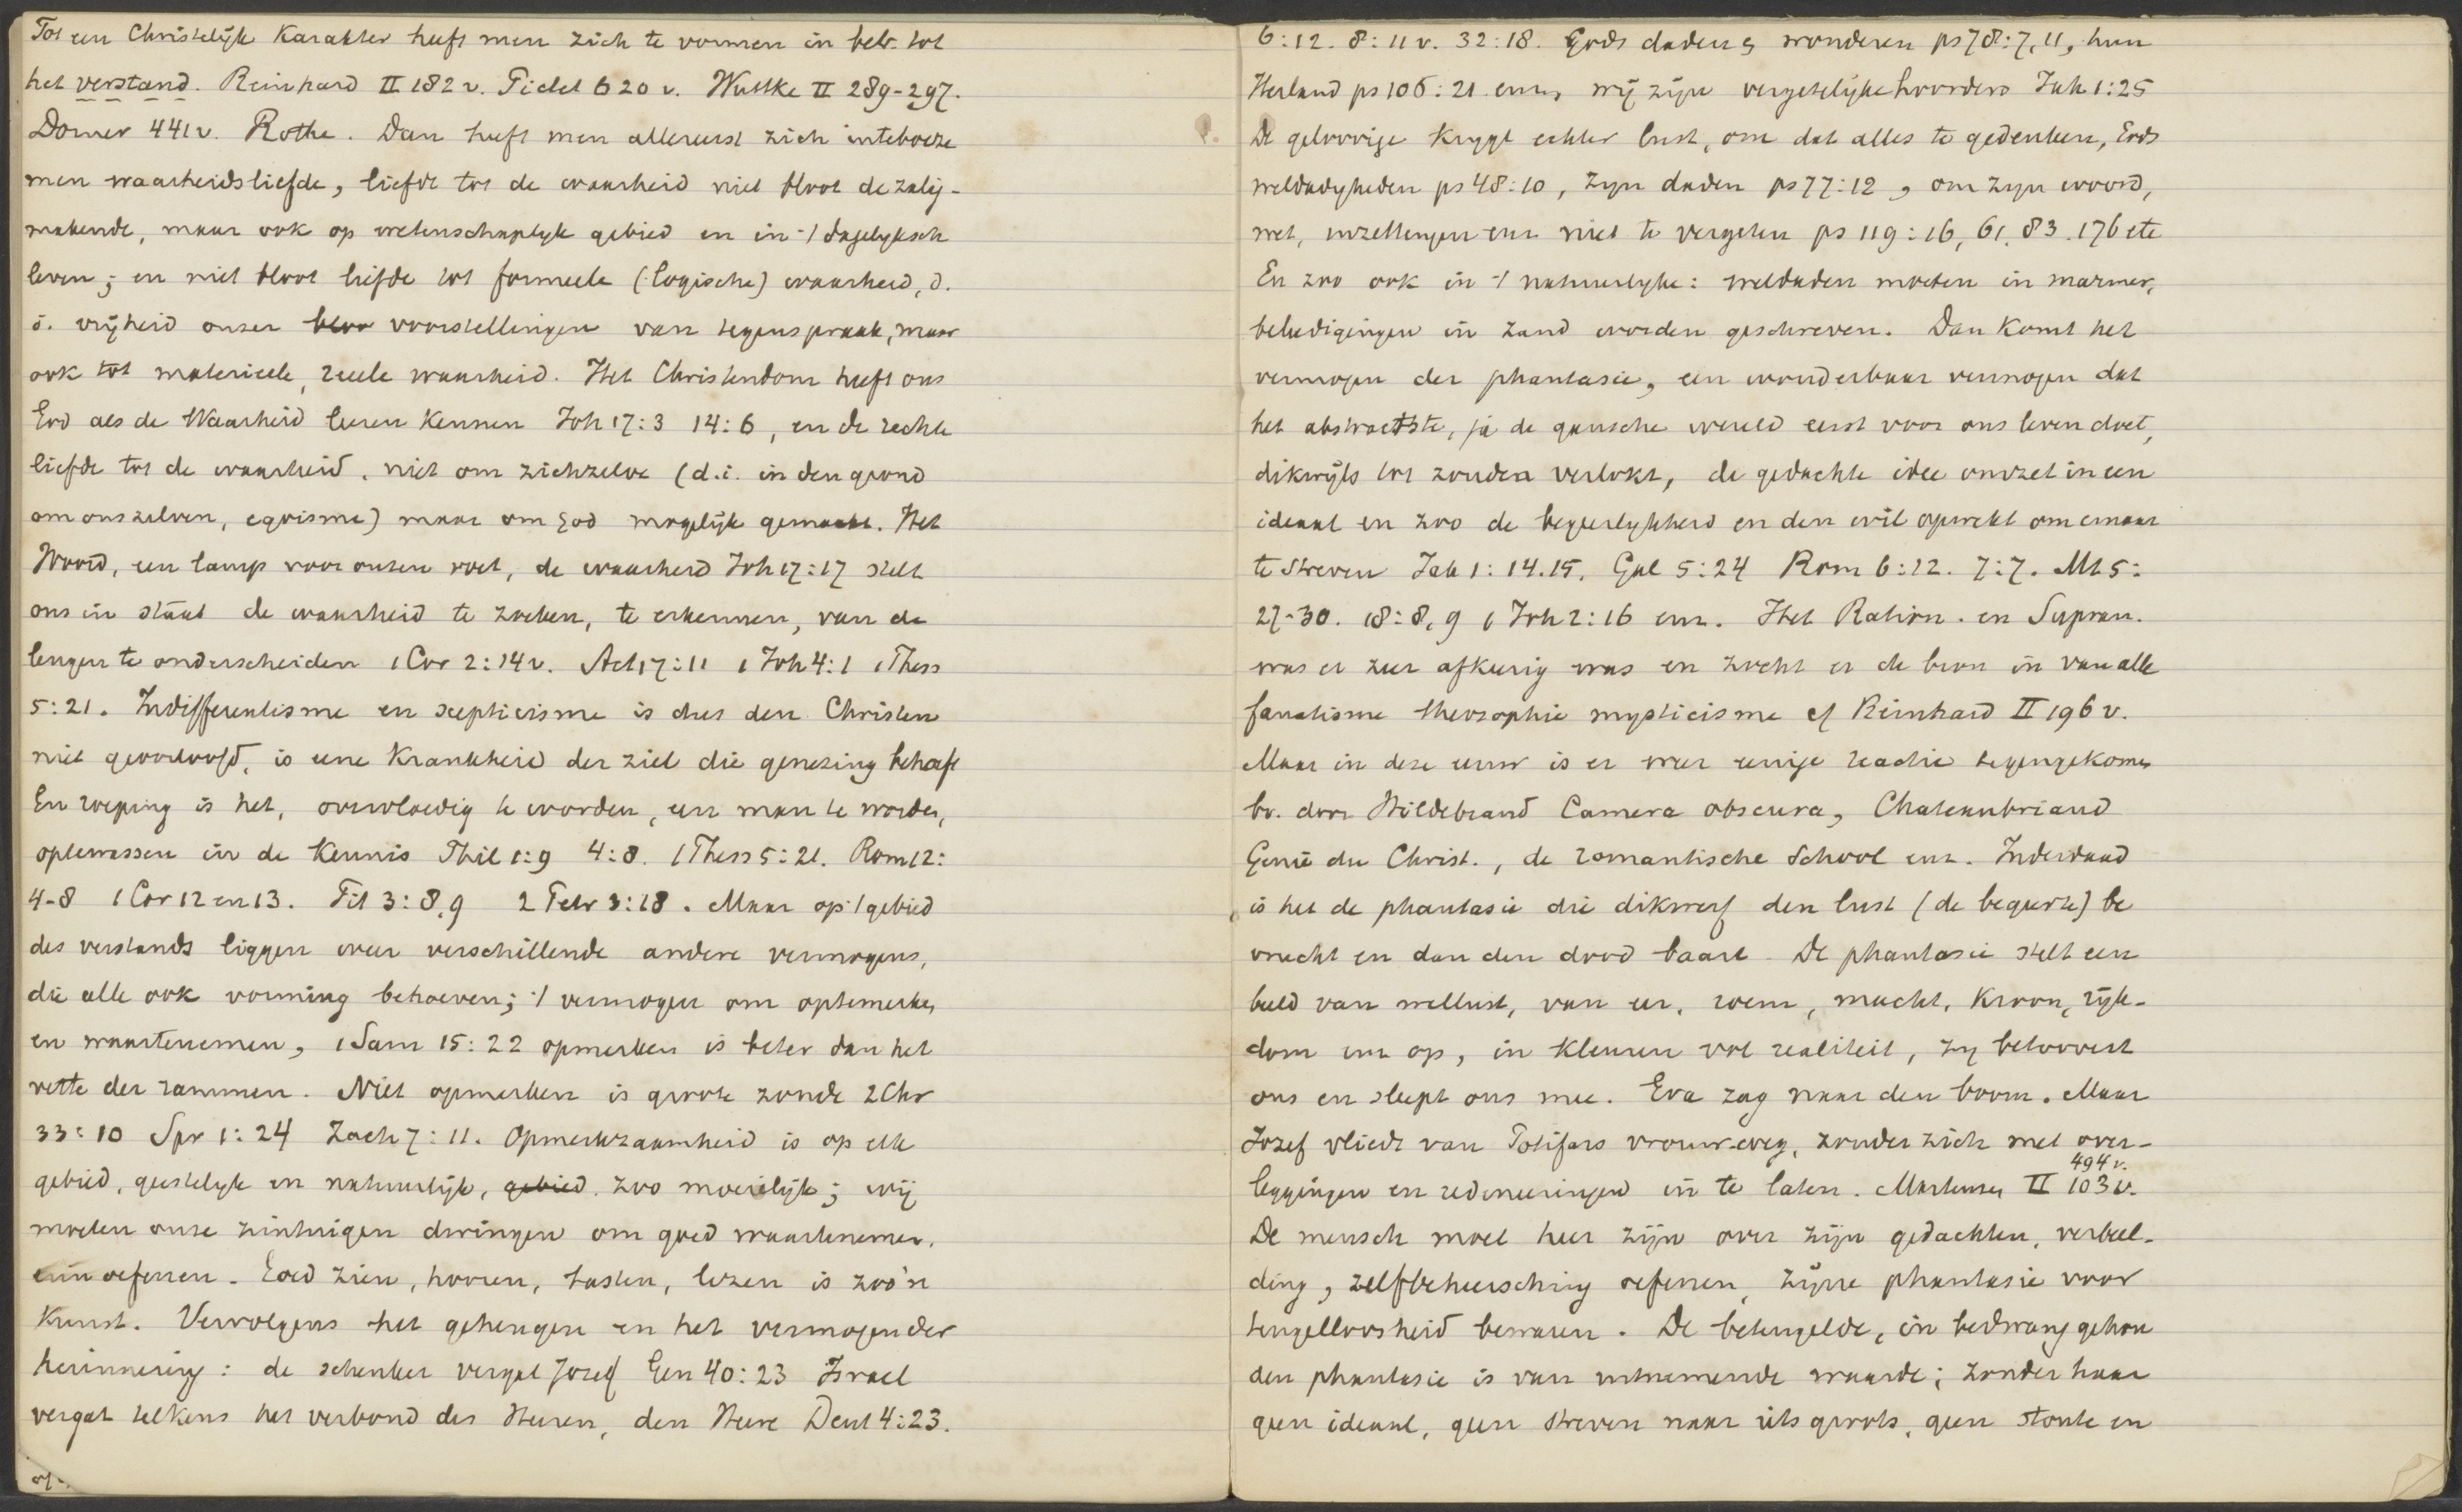 Tot een Christelijk Karakter heeft men zich te vormen in betr. tot
het verstand. Reinhard II 182 v. Fidel 620 v. Wuttke II 289-297.
Dorner 441 v. Rothe. Dan heeft men allereerst zich inteboeze
men waarheidsliefde, liefde tot de waarheid niet bloot de zalig-
makende, maar ook op wetenschaplyk gebied en in 't dagelyksch
leven; en niet bloot liefde tot formeele (logische) waarheid, d.
i. vrijheid onzer voorstellingen van tegenspraak, maar
ook tot materieele, reele waarheid. Het Christendom heeft ons
God als de Waarheid leeren Kennen Joh 17:3 14:6, en de rechte
liefde tot de waarheid, niet om zichzelve (d.i. in den grond
om ons zelven, egoisme) maar om God mogelijk gemaakt. Het
Woord, een lamp voor onzen voet, de waarheid Joh 17:17 stelt
ons in staat de waarheid te zoeken, te erkennen, van de
leugen te onderscheiden 1 Cor 2:14 v. Act 17:11 1 Joh 4:1 1 Thess
5:21. Indifferentisme en scepticisme is dus den Christen
niet geoorloofd, is eene Krankheid der ziel die genezing behoeft
En roeping is het, overvloedig te worden, een man te worden,
optewassen in de Kennis Phil 1:9 4:8. 1 Thess 5:21. Rom 12:
4-8 1 Cor 12 en 13. Tit 3:8,9 2 Petr 3:18. Maar op 't gebied
des verstands liggen weer verschillende andere vermogens,
die alle ook vorming behoeven; 't vermogen om optemerken
en waartenemen, 1 Sam 15:22 opmerken is beter dan het
vette der rammen. Niet opmerken is groote zonde 2 Chr
33:10 Spr 1:24 Zach 7:11. Opmerkzaamheid is op elk
gebied, geestelyk en natuurlijk, gebied zoo moeielijk; wij
moeten onze zintuigen dwingen om goed waartenemen,
oefenen. Goed zien, hooren, tasten, lezen is zoo'n
Kunst. Vervolgens het geheugen en het vermogen der
herinnering: de schenker vergat Jozef Gen 40:23 Israel
vergat telkens het verbond des Heeren, den Heere Deut 4:23.
6:12. 8:11 v. 32:18. Gods daden & wonderen ps 78:7,11, hun
Heiland ps 106:21 enz, wij zijn vergetelyke hoorders Jak 1:25
De geloovige Krygt echter lust, om dat alles te gedenken, Gods
weldadigheden ps 48:10, zyn daden ps 77:12, om zyn woord,
wet, inzettingen enz niet te vergeten ps 119:16, 61, 83. 176 etc
En zoo ook in 't natuurlyke: weldaden moeten in marmer,
beleedigingen in zand worden geschreven. Dan Komt het
vermogen der phantasie, een wonderbaar vermogen dat
het abstractste, ja de gansche wereld eerst voor ons leven doet,
dikwijls tot zonden verlokt, de gedachte idee omzet in een
ideaal en zoo de begeerlykheid en den wil opwekt om ernaar
te streven Jak 1:14.15. Gal 5:24 Rom 6:12. 7:7. Mt 5:
27-30. 18:8,9 1 Joh 2:16 enz. Het Ration. en Supran.
was er zeer afkeerig was en zocht er de bron in van alle
fanatisme theosophie mysticisme cf Reinhard II 196 v.
Maar in deze eeuw is er weer eenige reactie tegengekomen
bv. door Hildebrand Camera obscura, Chateaubriand
Genie du Christ., de romantische School enz. Inderdaad
is het de phantasie die dikwerf den lust (de begeerte) be
vrucht en dan den dood baart. De phantasie stelt een
beeld van wellust, van eer, roem, macht, Kroon, rijk-
dom enz op, in Kleuren vol realiteit, zy betoovert
ons en sleept ons mee. Eva zag naar den boom. Maar
Jozef vliedt van Potifars vrouw weg, zonder zich met over-
494 v.
leggingen en redeneeringen in te laten. Martensen II 103 v.
De mensch moet heer zijn over zijn gedachten, verbeel-
ding, zelfbeheersching oefenen, zijne phantasie voor
tengelloosheid bewaren. De beteugelde, in bedwang gehou
den phantasie is van uitnemende waarde; zonder haar
geen ideaal, geen streven naar iets groots, geen stoute en